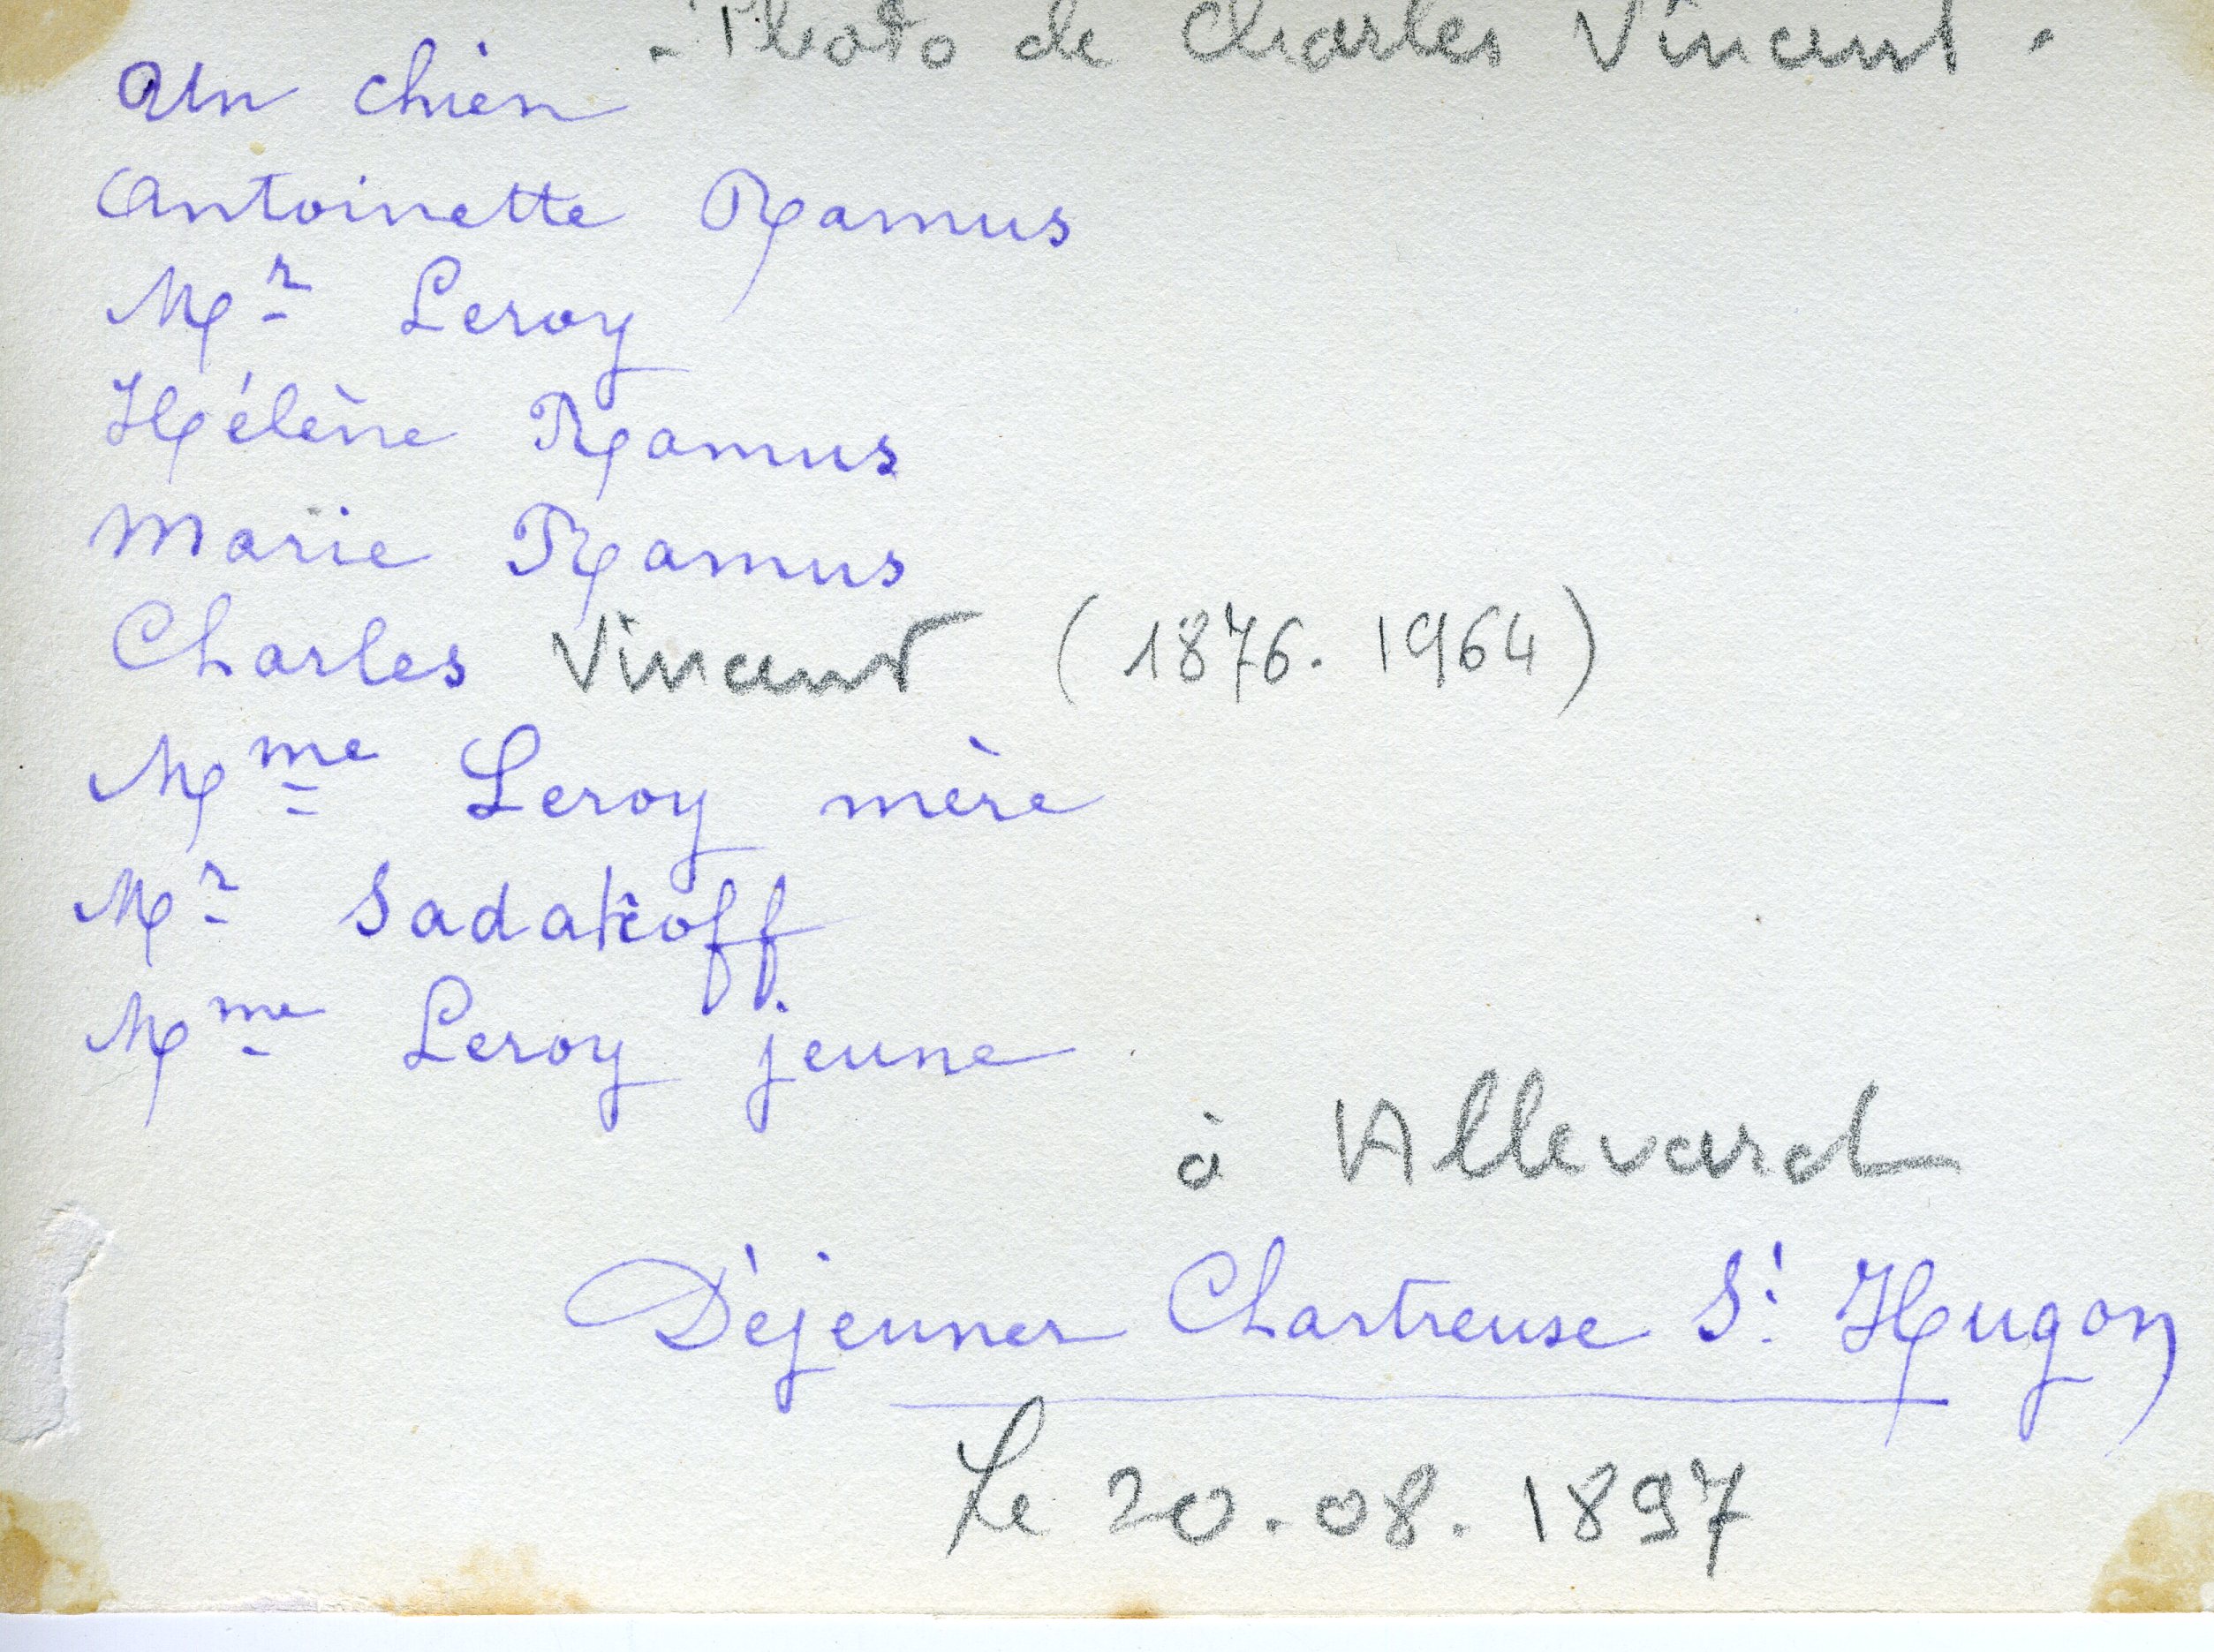 - Photo de Charles Vincent -
Un chien
Antoinette Ramus
Mr Leroy
Hélène Ramus
Marie Ramus
Charles Vincent (1876. 1964)
Mme Leroy mère
Mr Sadakoff
Mme Leroy jeune
à Allevard
Déjeuner Chartreuse St Hugon
Le 20.08.1897